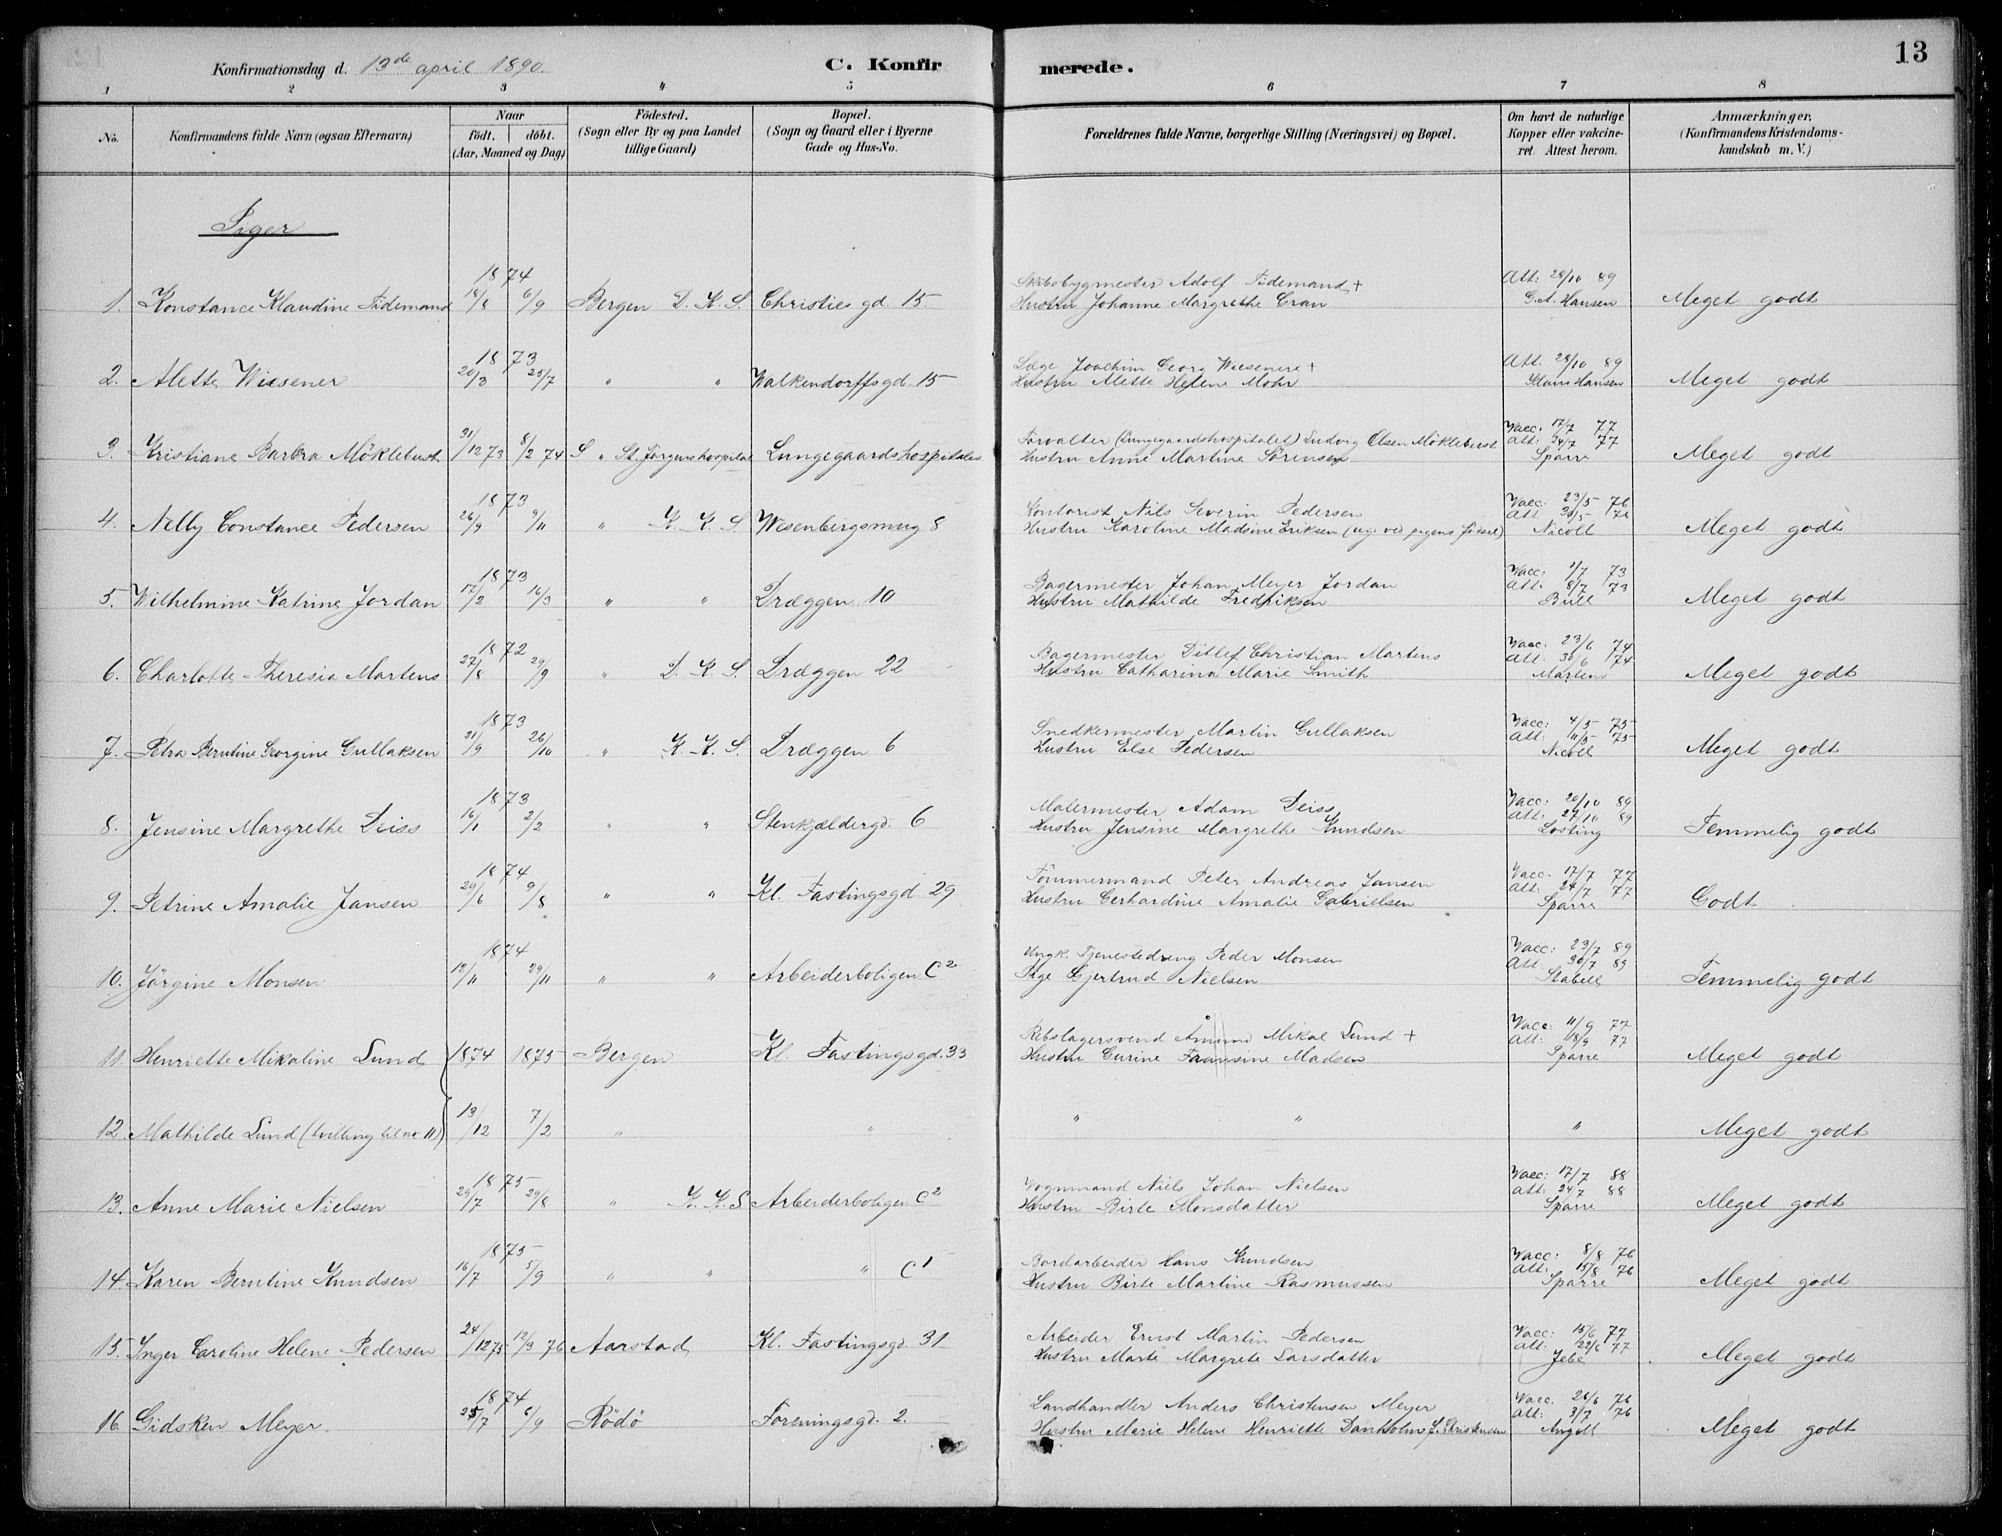 13
Konfirmationsdag d. 13de april 1890.
C. Konfirmerede.
1 2 3 4 5 6 7 8
No. Konfirmandens fulde Navn (ogsaa Efternavn) Naar födt. döbt. (Aar, Maaned og Dag) Födested. (Sogn eller By og paa Landet tillige Gaard) Bopæl. (Sogn og Gaard eller i Byerne Gade og Hus-No. Forældrenes fulde Navne, borgerlige Stilling (Næringsvei) og Bopæl. Om havt de naturlige Kopper eller vakcineret. Attest herom. Anmærkninger. (Konfirmandens Kristendomskundskab m. V.)
Piger
1874 Skibsbygmester Adolf Tidemand + Att: 28/10 89
1. Konstance Klaudine Tidemand 18/8 6/9 Bergen D. K. S. Christies gd. 15 Hustru Johanne Margrethe Gran G.A. Hansen Meget godt
1873 Læge Joachim Georg Wiesener + Att: 28/10 89
2. Alette Wiesener 20/3 25/7 " " Walkendorffsgd. 15 Hustru Alette Helene Mohr Klaus Hansen Meget godt
Forvalter (Lungegaardshospitalet) Ludvig Olsen Möklebust Vacc: 17/7 77 Att: 24/7 77
3. Kristiane Barbra Möklebust 31/12 73 8/2 74 S " St. Jörgenshospital Lungegaardshospitalet Hustru Anne Martine Sörensen Sparre Meget godt
1873 Kontorist Nils Severin Pedersen Vacc: 23/5 76 Att: 30/5 76
4. Nelly Constance Pedersen 26/9 9/11 " K. K. S Wesenbergsmug 8 Hustru Karoline Madsine Eriksen (ug: ved pigens födsel) Nicoll Meget godt
1873 Bagermester Johan Meyer Jordan Vacc: 1/7 73 Att: 8/7 73
5. Wilhelmine Katrine Jordan 17/2 16/3 " " Dræggen 10 Hustru Mathilde Fredriksen Bull Meget godt
1872 Bagermester Ditlef Christian Martens Vacc: 23/6 74 Att: 30/6 74
6. Charlotte Theresia Martens 27/8 29/9 " D. K. S. Dræggen 22 Hustru Catharina Marie Smith Martens Meget godt
1873 Snedkermester Martin Gullaksen Vacc: 4/5 75 Att: 11/5 75
7. Petra Berntine Georgine Gullaksen 21/9 26/10 " K. K. S. Dræggen 6 Hustru Else Pedersen Nicoll Meget godt
1873 Malermester Adam Deiss Vacc: 20/10 89 Att: 27/10 89
8. Jensine Margrethe Deiss 16/1 2/2 " " Stenkjældergd. 6 Hustru Jensine Margrethe Knudsen Losting Temmelig godt
1874 Tömmermand Peter Andreas Jansen Vacc: 17/7 77 Att: 24/7 77
9. Petrine Amalie Jansen 29/6 9/8 " " Kl. Fastingsgd 29 Hustru Gerhardine Amalie Gabrielsen Sparre Godt
1874 Ungk. Tjenestedreng Peder Monsen Vacc: 23/7 89 Att: 30/7 89
10. Jörgine Monsen 12/11 29/11 " " Arbeiderboligen C2 Pige Gjertrud Nielsen Stabell Temmelig godt
Rebslagersvend Mikal Lund + Vacc: 11/9 77 Att: 18/9 77
11. Henriette Mikaline Lund 1874 1875 Bergen Kl. Fastingsgd. 33 Hustru Gurine Fransine Madsen Sparre Meget godt
12. Mathilde Lund (tvilling til no 11) 13/12 7/2 " " " " " Meget godt
1875 Vognmand Niels Johan Nielsen Vacc: 17/7 88 Att: 24/7 88
13. Anne Marie Nielsen 29/7 29/8 " K. K. S Arbeiderboligen C2 Hustru Birte Monsdatter Sparre Meget godt
1875 Bordarbeider Hans Knudsen Vacc: 8/8 76 Att: 15/8 76
14. Karen Berntine Knudsen 16/7 5/9 " " " C1 Hustru Birte Martine Rasmussen Sparre Meget godt
Arbeider Ernst Martin Pedersen Vacc: 15/6 77 Att: 22/6 77
15. Inger Caroline Helene Pedersen 24/12 75 12/3 76 Aarstad Kl. Fastingsgd. 31 Hustru Marte Margrete Larsdatter Jebe Meget godt
1874 Landhandler Anders Christensen Meyer Vacc. 26/6 76 Att: 3/7 76
16. Gidsken Meyer 25/7 6/9 Rödö Foreningsgd. 2. Hustru Marie Helene Henriette f. Christensen Angell Meget godt